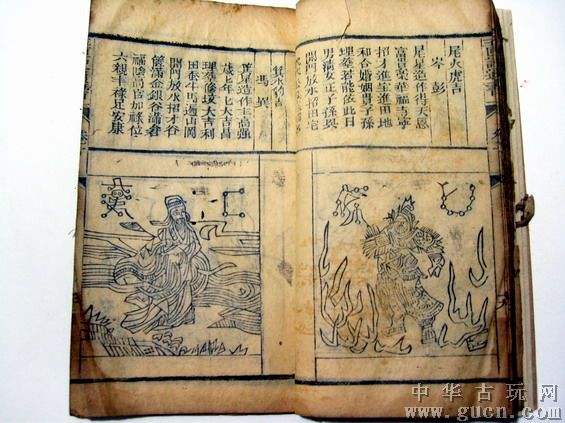 尾火虎吉
岑彭
尾星造作得天恩
富貴榮華福吉寧
招才進宝進田地
和合婚姻貴子孫
埋葬若能依此日
男清女正子孫興
開門放水招田宅
箕水豹吉
馮異
箕星造作主高强
大吉昌
埋葬修墳大吉利
田蚕牛馬遍山岡
開門放水招才谷
滿金銀谷滿倉
福蔭高官加祿位
六親丰祿足安康
中华古玩网
www.gucn.com